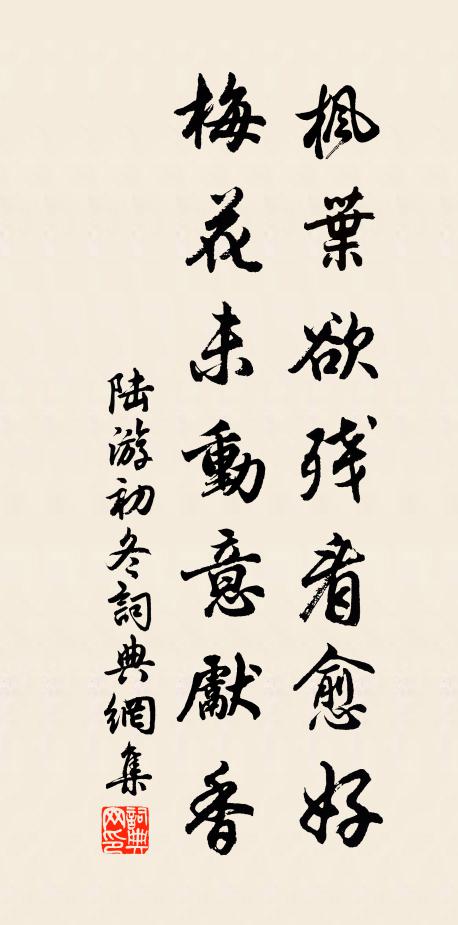 楓葉欲残看愈好
梅花未動意獻香
陆游初冬詞典網集
詞典
网印